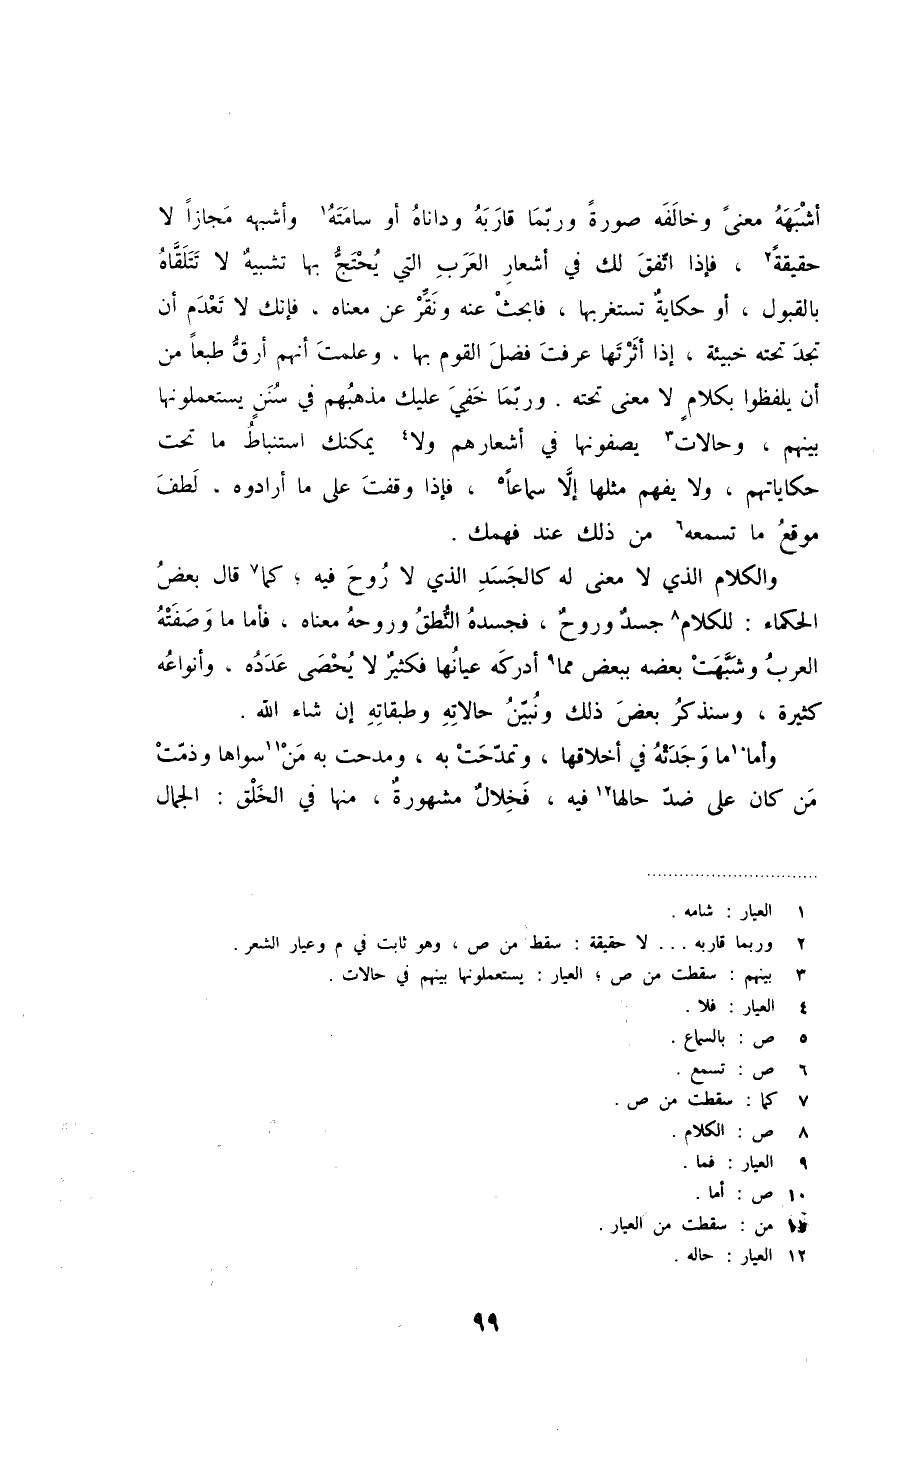 أشْبَهَهُ معنىً وخالَفَه صورةً وربّمَا قارَبَهُ وداناهُ أو سامَتَهُ١ وأشبهه مَجازاً لا
حقيقةً٢ ، فإذا اتّفقَ لك في أشعارِ العَرَبِ التي يُحْتَجُّ بها تشبيهٌ لا تَتَلَقَّاهُ
بالقبول ، أو حكايةٌ تستغربها ، فابحثْ عنه ونَقِّرْ عن معناه . فإنك لا تَعْدَم أن
تجدَ تحته خبيئة ، إذا أثَرْتَها عرفتَ فضلَ القوم بها . وعلمتَ أنهم أرقُّ طبعاً من
أن يلفظوا بكلامٍ لا معنى تحته . وربّمَا خَفِيَ عليك مذهبُهم في سُنَنٍ يستعملونها
بينهم ، وحالات٣ يصفونها في أشعارهم ولا٤ يمكنك استنباطُ ما تحت
حكاياتهم ، ولا يفهم مثلها إلَّا سماعاً٥ ، فإذا وقفتَ على ما أرادوه . لَطفَ
موقعُ ما تسمعه٦ من ذلك عند فهمك .
والكلام الذي لا معنى له كالجَسَدِ الذي لا رُوحَ فيه ؛ كما٧ قال بعضُ
الحكماء : للكلام٨ جسدٌ وروحٌ ، فجسدهُ النُّطقُ وروحهُ معناه ، فأما ما وَصَفَتْهُ
العربُ وشَبَّهَتْ بعضه ببعض مما٩ أدركَه عيانُها فكثيرٌ لا يُحْصَى عَدَدُه . وأنواعُه
كثيرة ، وسنذكرُ بعضَ ذلك ونُبيّنُ حالاتِهِ وطبقاتِهِ إن شاء الله .
وأما١٠ ما وَجَدَتْهُ في أخلاقها ، وتمدّحَتْ به ، ومدحت به مَنْ١١ سواها وذمّتْ
مَن كان على ضدّ حالها١٢ فيه ، فَخِلالٌ مشهورةٌ ، منها في الخَلْق : الجمال
١ العيار : شامه .
٢ وربما قاربه ... لا حقيقة : سقط من ص ، وهو ثابت في م وعيار الشعر .
٣ بينهم : سقطت من ص ؛ العيار : يستعملونها بينهم في حالات .
٤ العيار : فلا .
٥ ص : بالسماع .
٦ ص : تسمع .
٧ كما : سقطت من ص .
٨ ص : الكلام .
٩ العيار : فما .
١٠ ص : أما .
١١ من : سقطت من العيار .
١٢ العيار : حاله .
٩٩